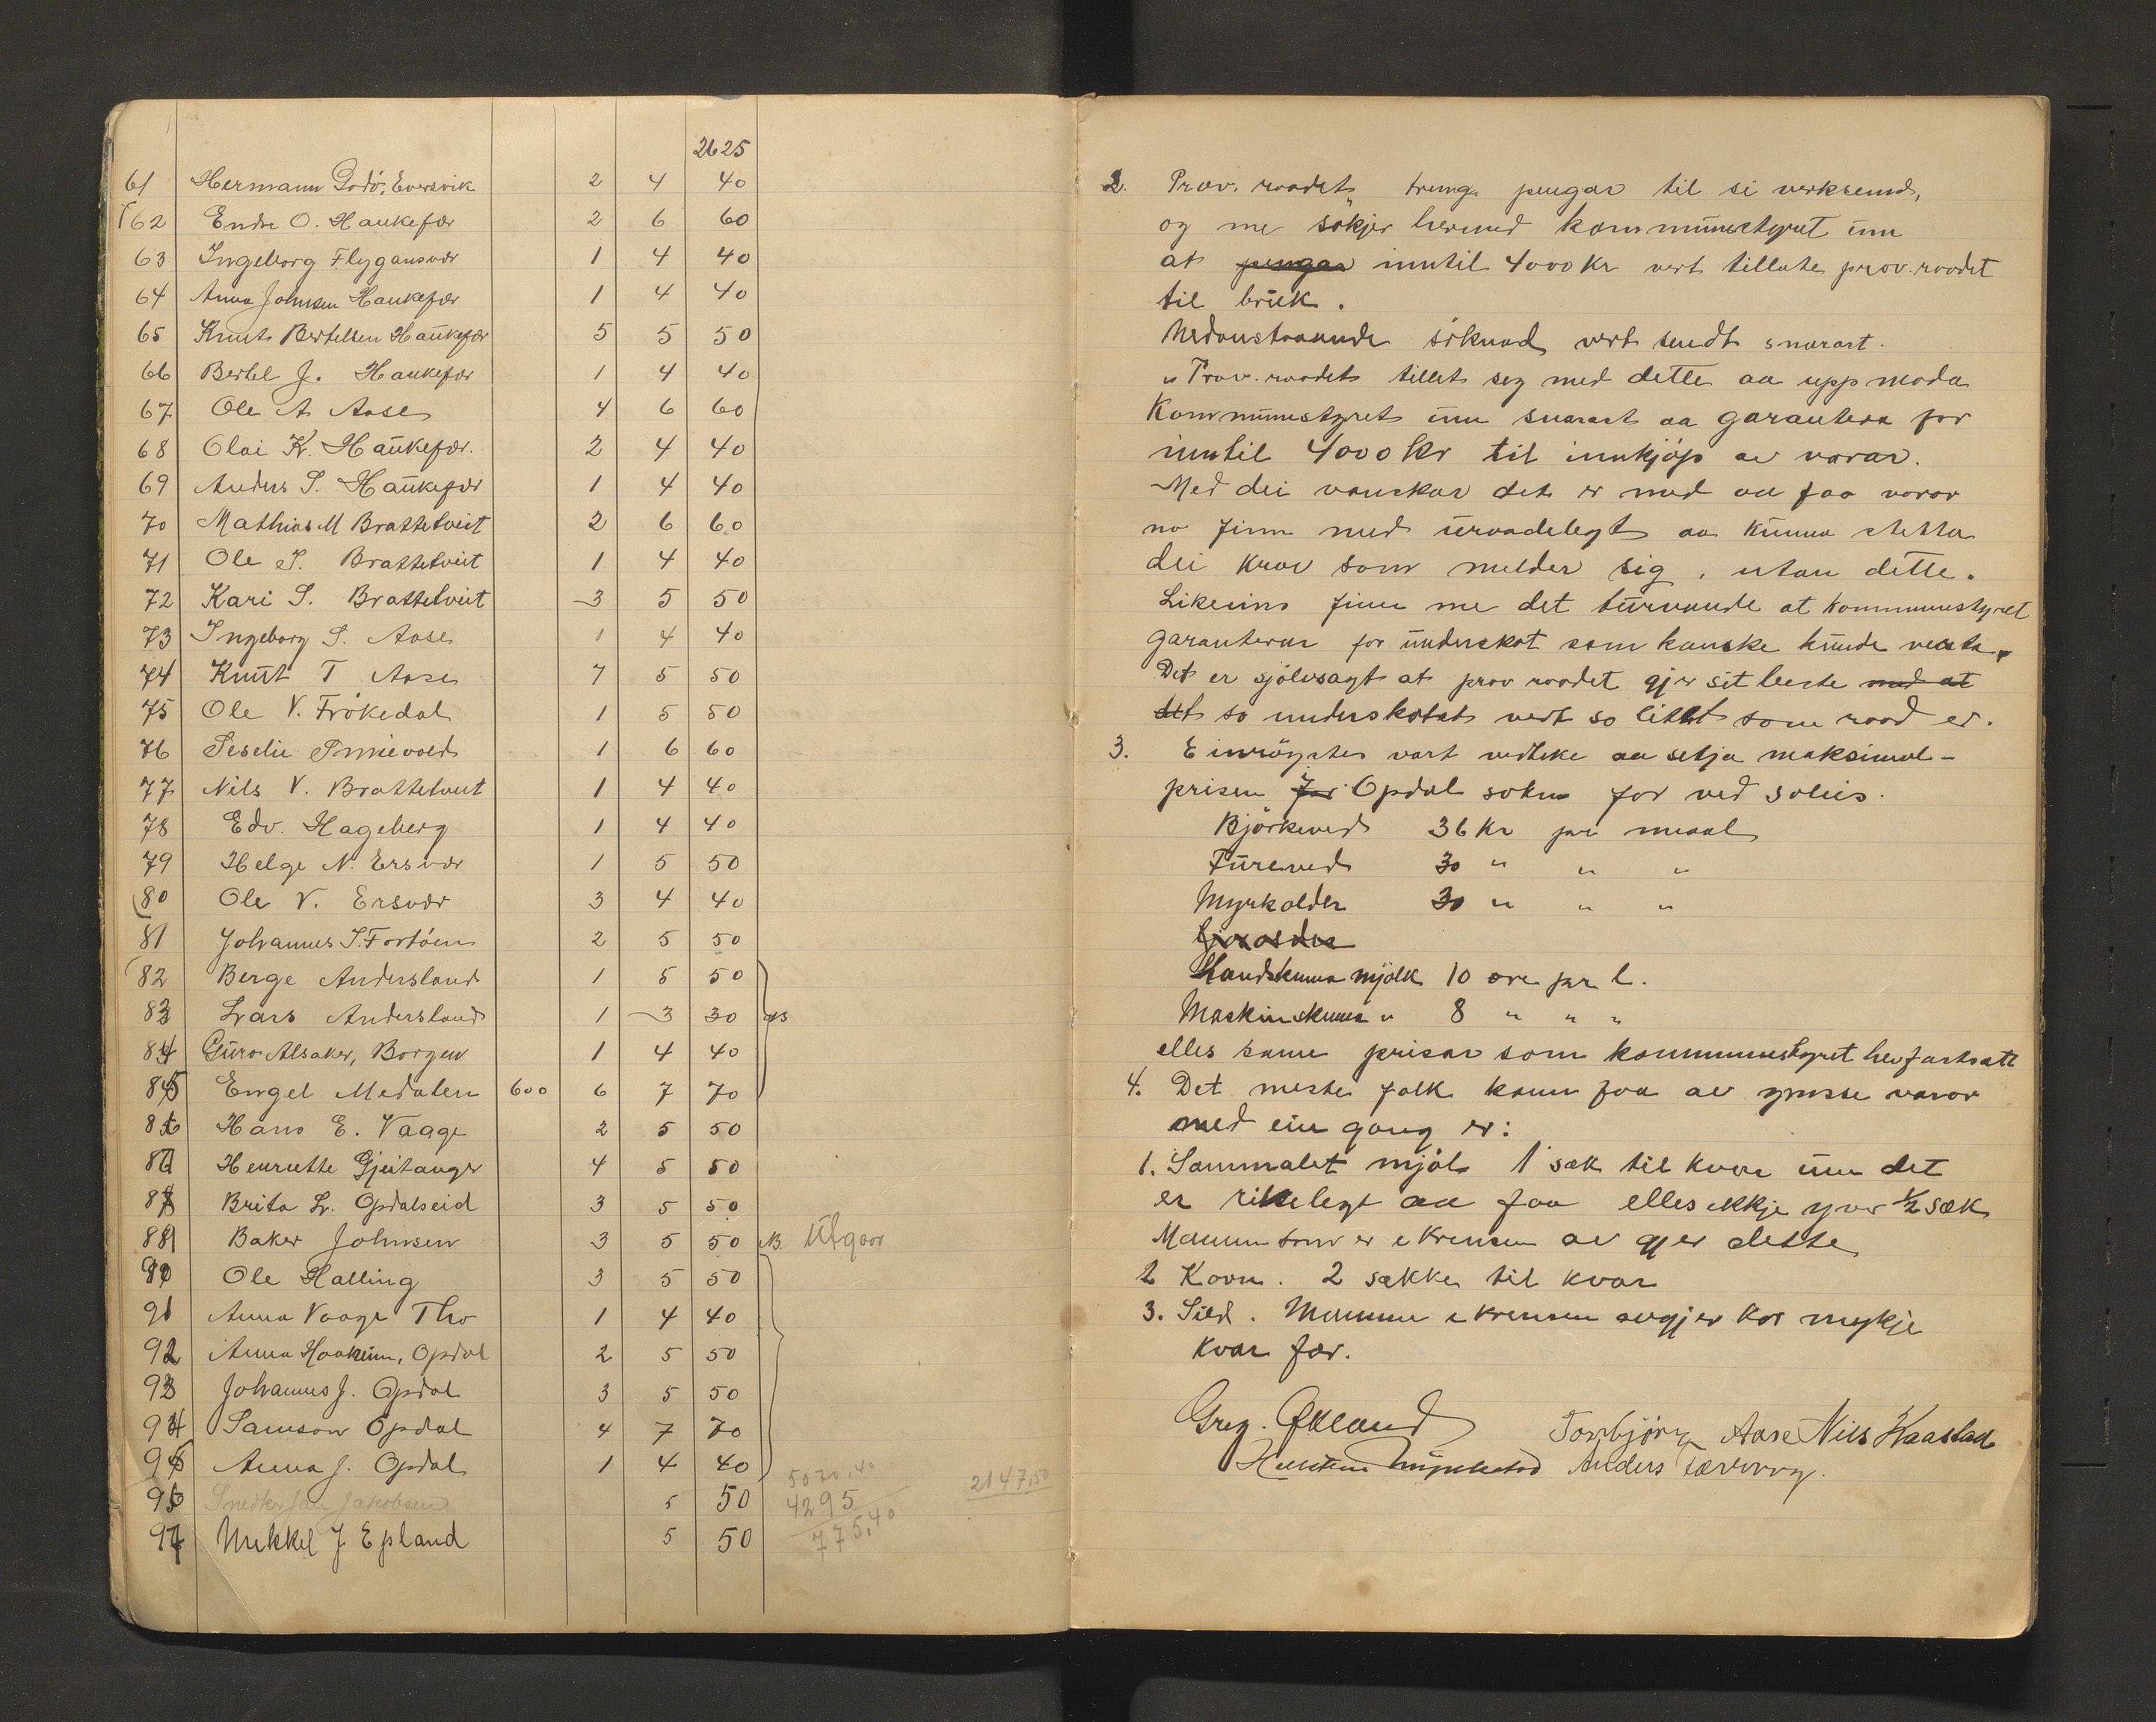 2625
61 Hermann Godö, Eversvik 2 4 40
62 Endre O. Haukefær 2 6 60
63 Ingeborg Flygansvær 1 4 40
64 Anna Johnsen Haukefær 1 4 40
65 Knut Bertelsen Haukefær 5 5 50
66 Bertel J. Haukefær 1 4 40
67 Ole A Aase 4 6 60
68 Olai K. Haukefær. 2 4 40
69 Anders S. Haukefær 1 4 40
70 Mathias M Brattetveit 2 6 60
71 Ole S. Brattetveit 1 4 40
72 Kari S. Brattetveit 3 5 50
73 Ingeborg S. Aase 1 4 40
74 Knut T Aase 7 5 50
75 Ole V. Frökedal 1 5 50
76 Seselie 1 6 60
77 Nils V. Brattetveit 1 4 40
78 Edv. Hageberg 1 4 40
79 Helge N. Ersvær 1 5 50
80 Ole V. Ersvær 3 4 40
81 Johannes S. 2 5 50
82 Berge Andersland 1 5 50
83 Lars Andersland 1 3 30
84 Guro Alsaker, Borgen 1 4 40
85 Engel Medalen 600 6 7 70
86 Hans E. Vaage 2 5 50
87 Henriette Gjeitanger 4 5 50
88 Brita L. Opdalseid 3 5 50
89 Baker Johnsen 3 5 50 NB. Utgaar
90 Ole Halling 3 5 50
91 Anna Vaage Tho 1 4 40
92 Anna Haaheim, Opdal 2 5 50
93 Johannes J. Opdal 3 5 50
94 Samson Opdal 4 7 70
95 Anna J. Opdal 1 4 40
96 Snedker Jan Jakobsen 5 50
97 Mikkel J Epland 5 50
5070,40
4295
775,40
2147,50
2. Prov. raadet treng pengar til si verksemd,
og me sökjer hermed kommunestyret um
at pengar inntil 4000 kr vert tillate prov. raadet
til bruk.
Nedanstaaande söknad vert sendt snarast.
"Prov. raadet tillet seg med dette aa uppmoda
Kommunestyret um snarast aa garantera for
inntil 4000 kr til innkjöp av varar.
Med dei vanskar det er med aa faa varar
no finn med uraadelegt aa kunna stetta
dei krav som melder sig, utan dette.
Likeeins finn me det turvande at kommunestyret
garanterar for underskot som kanske kunde venta.
Det er sjölvsagt at prov raadet gjer sit beste med at
det so underskotet vert so litet som raad er.
3. Einröystes vart vedteke aa setja maksimal-
prisen for Opdal sokn for ved soleis.
Björkeved 36 kr pr maal
Fureved 30 " " "
Myrkolder 30 " " "
Handskuma mjölk 10 öre pr l.
Maskinskuma " 8 " " "
elles same prisar som kommunestyret hev fastsatt
4. Det meste folk kann faa av ymsse varor
med ein gong er:
1. Sammalet mjöl 1 sæk til kvar um det
er rikelegt aa faa elles ikkje yver 1/2 sæk
Mannen som er i krinsen avgjer dette
2 Korn. 2 sækker til kvar
3. Sild. Mannen i krinsen avgjer kor mykje
kvar fær.
Greg. Økland Torbjörn Aase Nils Haastad
Anders Tærvaag.